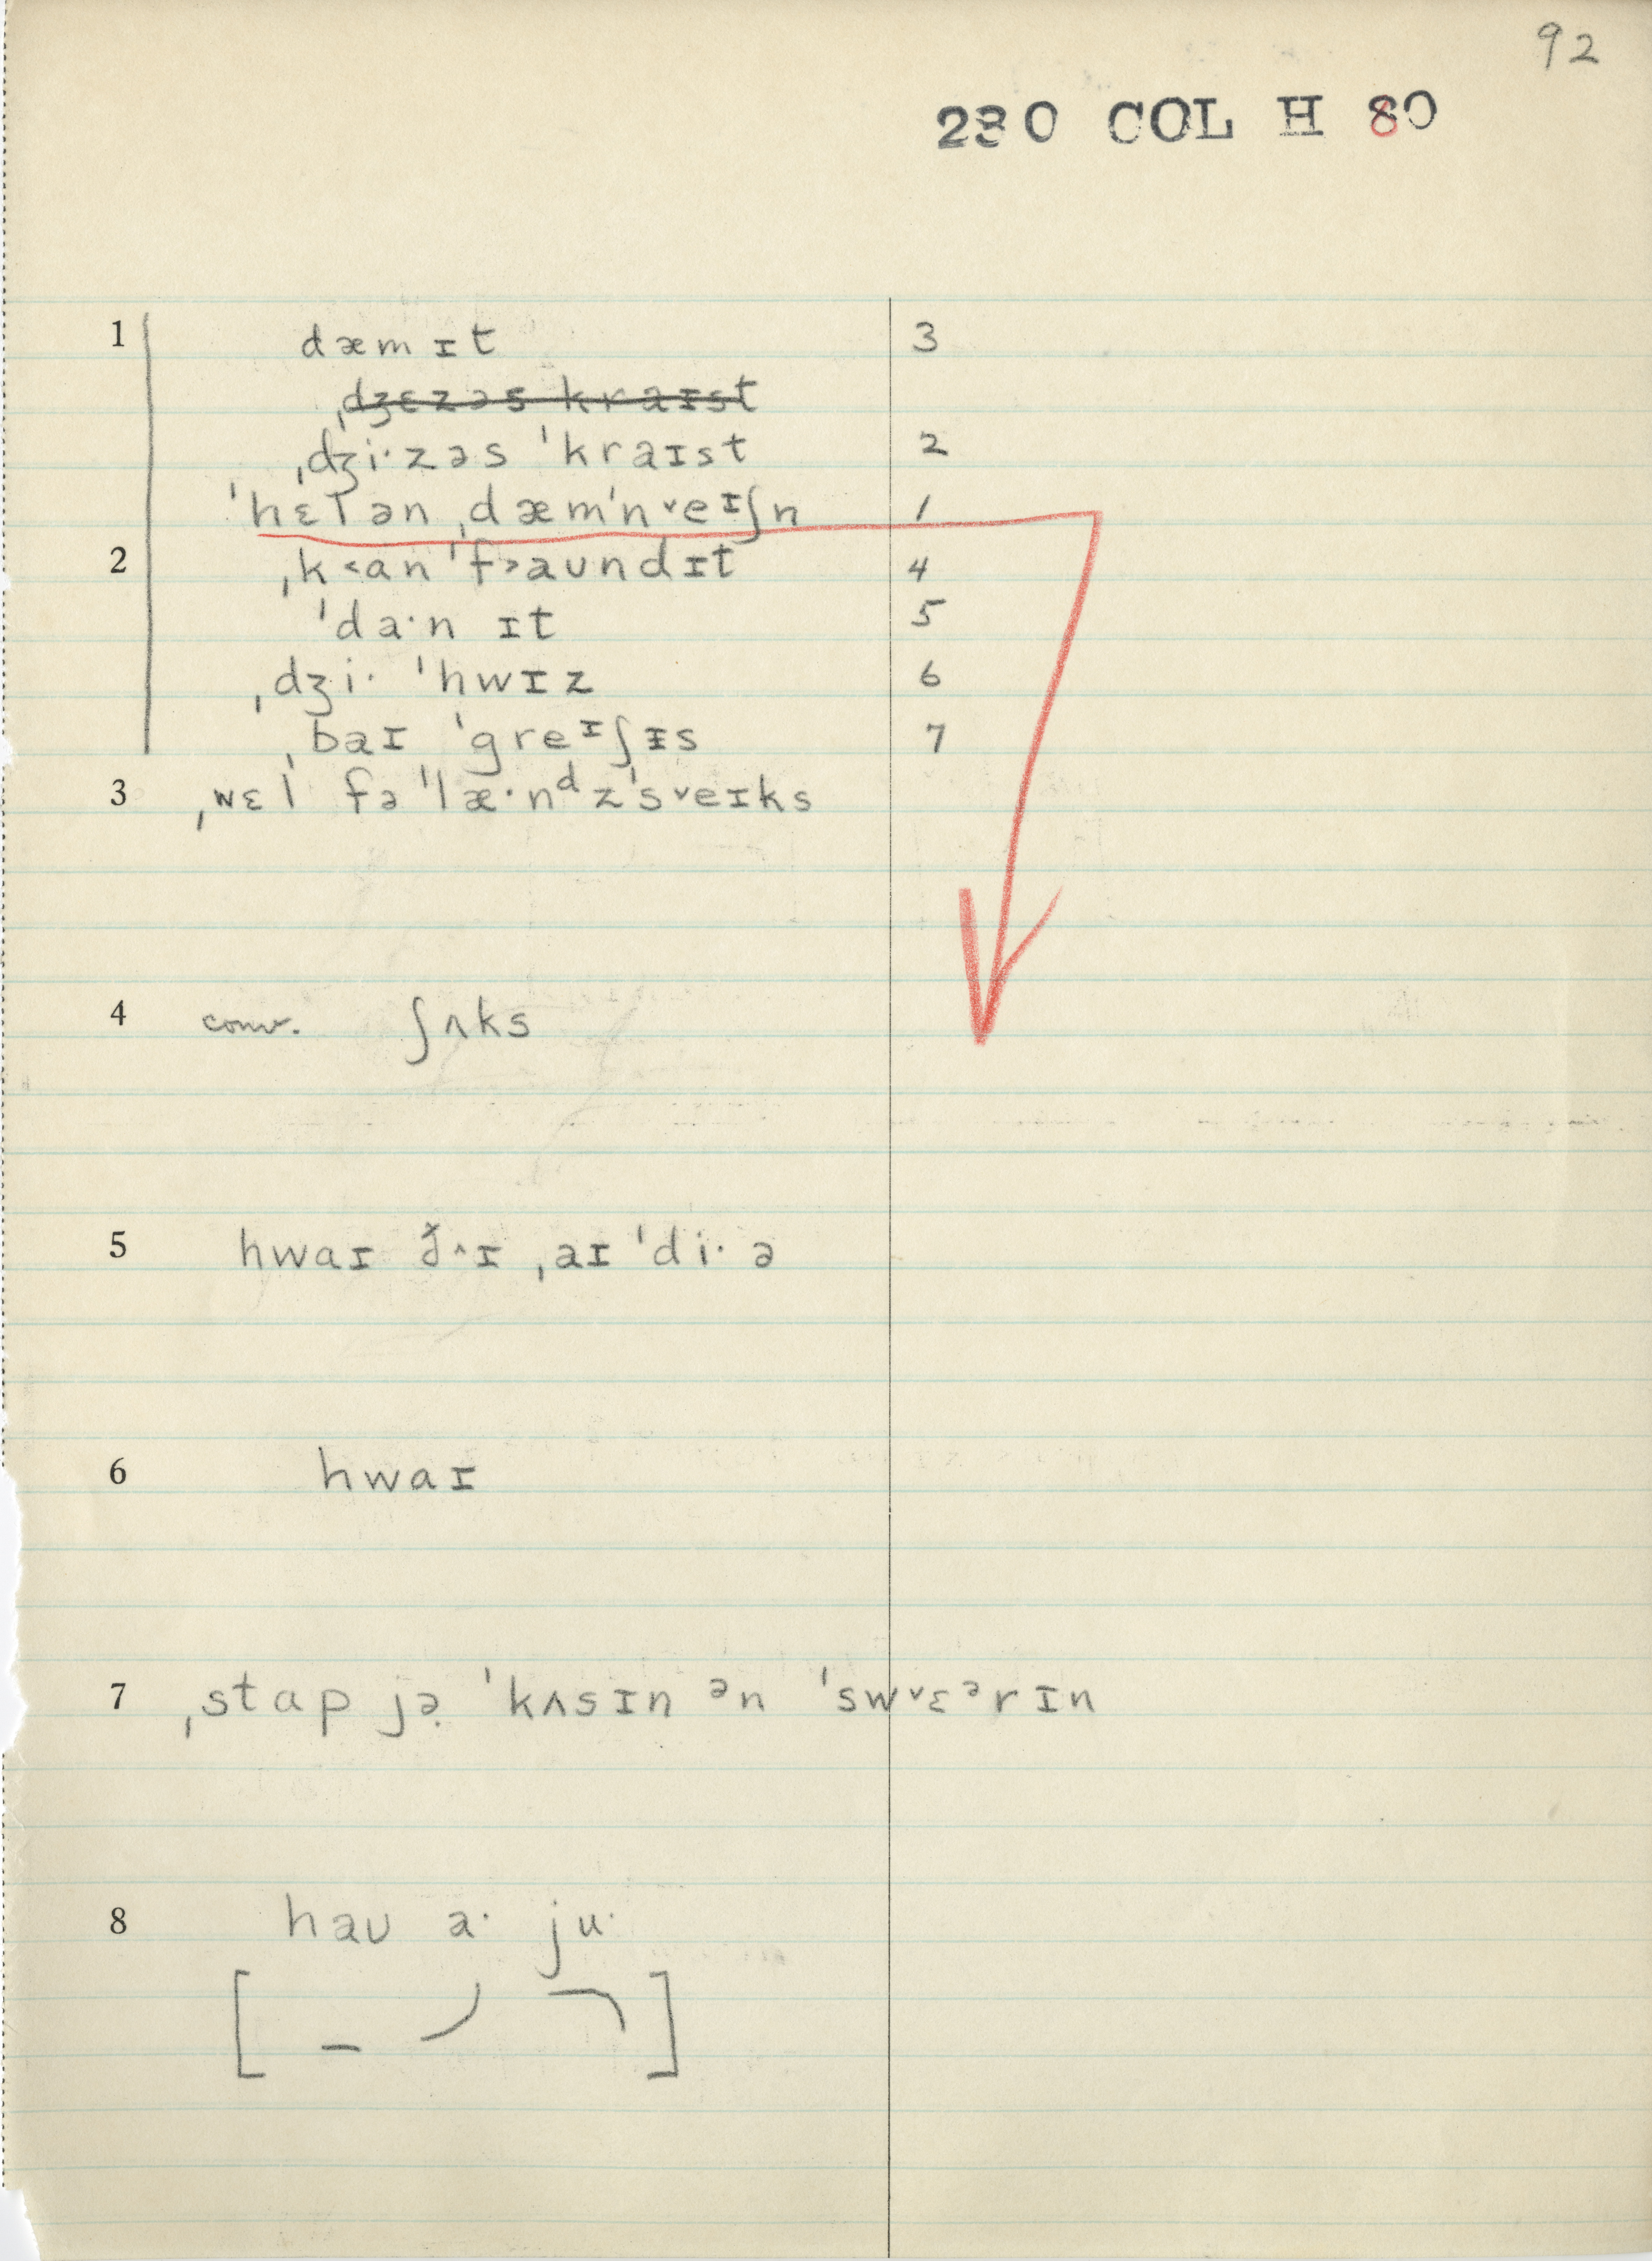 92
230 COL H 80
1 dæmɪt 3
ˌdʒɛzəs kraɪst
ˌdʒi·zəs ˈkraɪst 2
ˈhɛl ən ˌdæmˈn˅eᶦʃn 1
2 ˌk˂anˈf˃aʊndɪt 4
ˈda·n ɪt 5
ˌdʒi· ˈhwɪz 6
ˌbaɪ ˈgreᶦʃɪs 7
3 ˌwɛl fə ˈlæ·nᵈzˈs˅eɪks
4 conv. ʃʌks
5 hwaɪ ð̌˄ɪ ˌaɪˈdi·ə
6 hwaɪ
7 ˌstap jə̣ ˈkʌsɪn ᵊn ˈsw˅ɛᵊrɪn
8 haʊ a· ju·